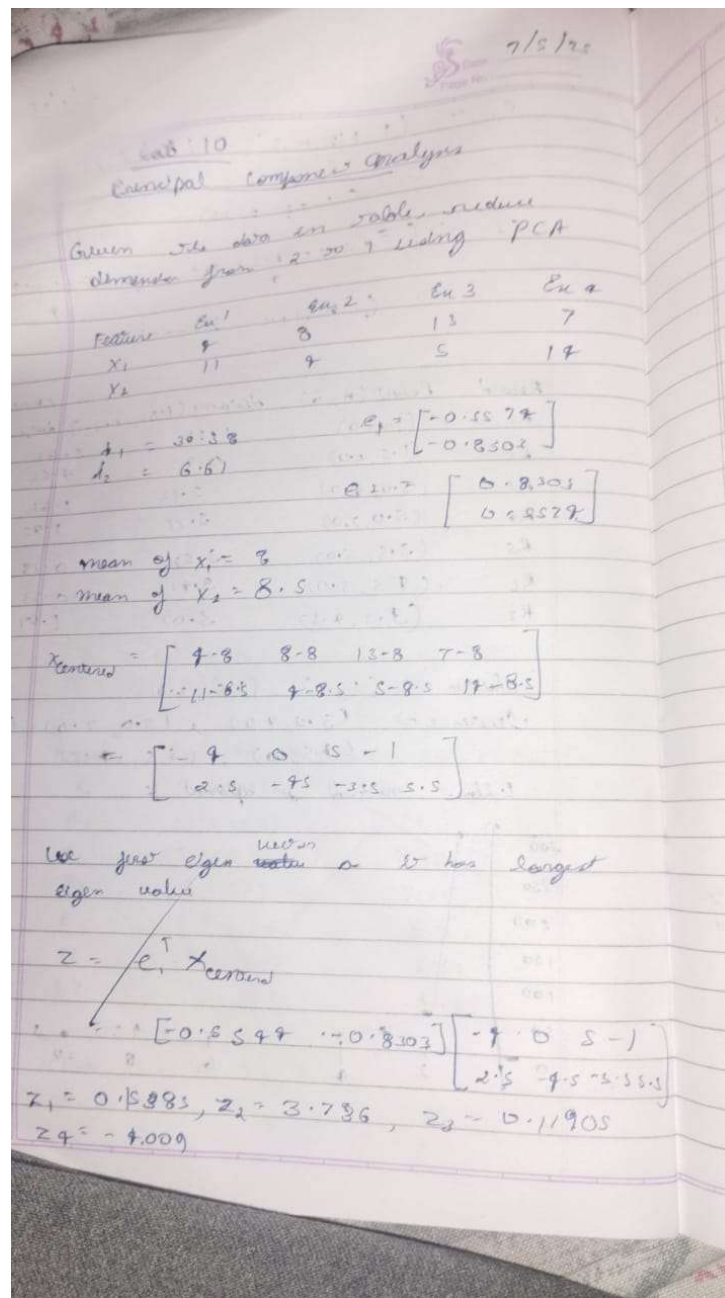 7/5/25
Date
Page No.
Lab 10
Principal Component Analysis
Given the data in table, reduce
dimension from 2 to 1 using PCA
Feature Ex 1 Ex 2 Ex 3 Ex 4
X1 4 8 13 7
X2 11 4 5 14
λ1 = 30.38 e1 = [-0.5574
-0.8303]
λ2 = 6.61 e2 = [0.8303
0.5574]
mean of X1 = 8
mean of X2 = 8.5
Xcentered = [4-8 8-8 13-8 7-8
11-8.5 4-8.5 5-8.5 14-8.5]
= [-4 0 5 -1
2.5 -4.5 -3.5 5.5]
Use first eigen vector as it has largest
eigen value
Z = e1ᵀ Xcentered
[-0.5544 -0.8303] [-4 0 5 -1
2.5 -4.5 -3.5 5.5]
Z1 = 0.15385, Z2 = 3.736, Z3 = 0.11905
Z4 = -4.009